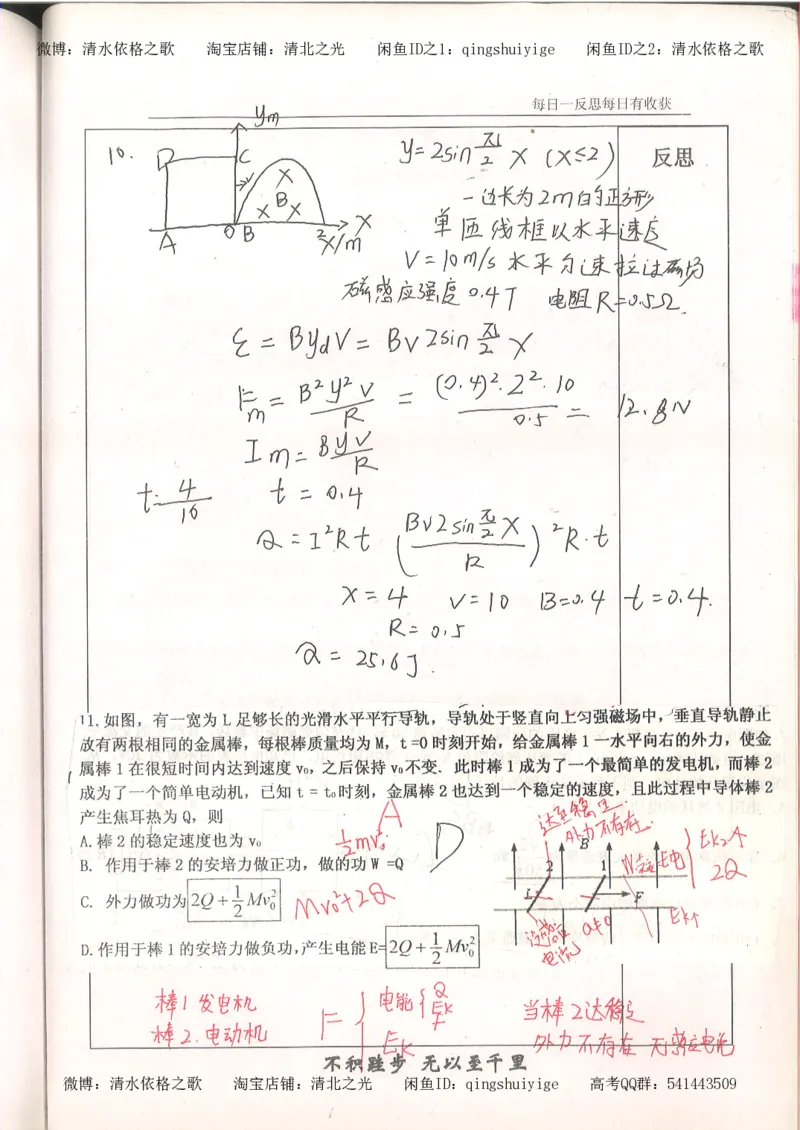 微博：清水依格之歌 淘宝店铺：清北之光 闲鱼ID之1：qingshuiyige 闲鱼ID之2：清水依格之歌
每日一反思每日有收获
反思
10.
ym
D C
v
X
B
X X
A O B 2 X
X/m
y=2sin π/2 X (X≤2)
一边长为2m的正方形
单匝线框以水平速度
V=10m/s 水平匀速拉过磁场
磁感应强度0.4T 电阻R=0.5Ω.
ε = BydV = BV2sin π/2 X
Fm = B²y²v/R = (0.4)²·2²·10/0.5 = 12.8N
Im = Byv/R
t=4/10 t=0.4
Q=I²Rt (Bv2sin π/2 X/R)²R·t
X=4 V=10 B=0.4 t=0.4.
R=0.5
Q=25.6J.
11.如图，有一宽为L足够长的光滑水平平行导轨，导轨处于竖直向上匀强磁场中，垂直导轨静止
放有两根相同的金属棒，每根棒质量均为M，t=0时刻开始，给金属棒1一水平向右的外力，使金
属棒1在很短时间内达到速度v₀，之后保持v₀不变. 此时棒1成为了一个最简单的发电机，而棒2
成为了一个简单电动机，已知t=t₀时刻，金属棒2也达到一个稳定的速度，且此过程中导体棒2
产生焦耳热为Q，则
A.棒2的稳定速度也为v₀
B. 作用于棒2的安培力做正功，做的功W=Q
C. 外力做功为2Q+½Mv₀²
D.作用于棒1的安培力做负功，产生电能E=2Q+½Mv₀²
A
D
½mv₀²
Mv₀²+2Q
达到稳定.
外力不存在.
B
2 1
L
F
a≠0
电流
Ek2个
2Q
Ek个
棒1发电机
棒2.电动机
F { 电能 { Q
Ek
Ek
当棒2达稳定
外力不存在
不积跬步 无以至千里
微博：清水依格之歌 淘宝店铺：清北之光 闲鱼ID：qingshuiyige 高考QQ群：541443509